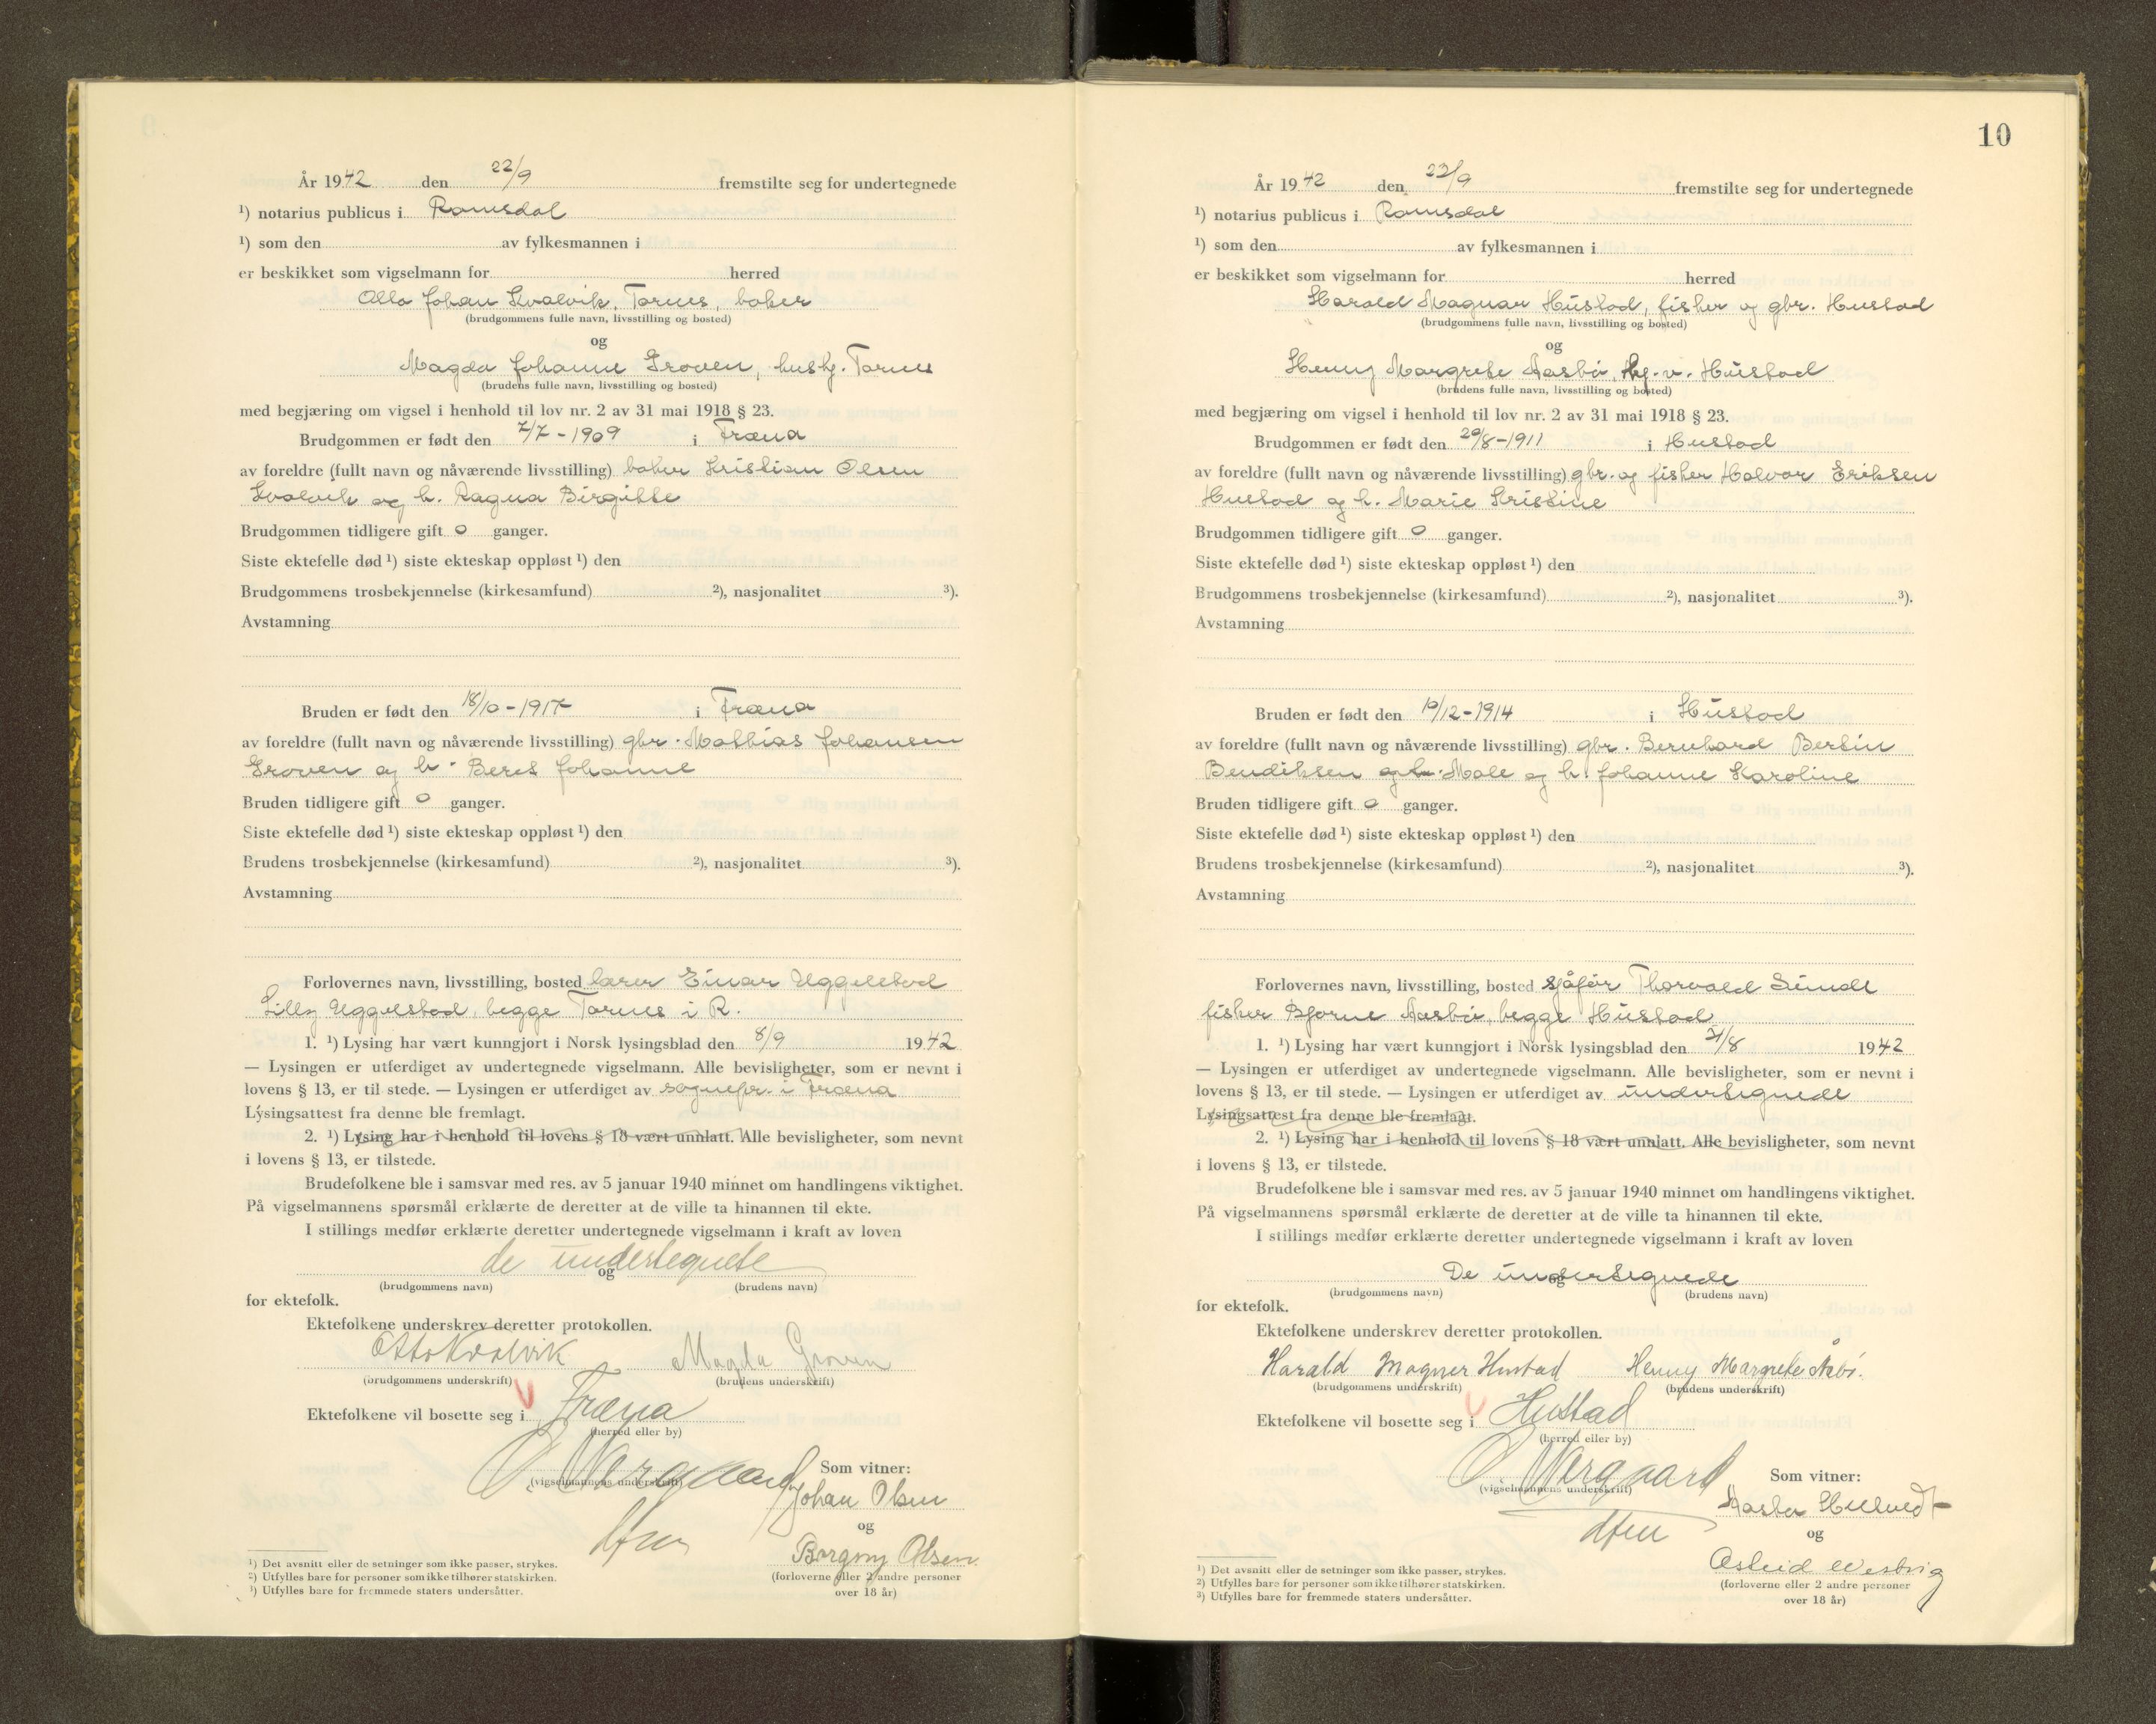 År 1942 den 22/9 fremstilte seg for undertegnede
¹) notarius publicus i Romsdal
¹) som den av fylkesmannen i
er beskikket som vigselmann for herred
Otto Johan Kvalvik, Tornes, baker
(brudgommens fulle navn, livsstilling og bosted)
og
Magda Johanne Groven, hushj. Tornes
(brudens fulle navn, livsstilling og bosted)
med begjæring om vigsel i henhold til lov nr. 2 av 31 mai 1918 § 23.
Brudgommen er født den 7/7-1909 i Fræna
av foreldre (fullt navn og nåværende livsstilling) baker Kristian Olsen
Kvalvik og h. Ragna Birgitte
Brudgommen tidligere gift 0 ganger.
Siste ektefelle død ¹) siste ekteskap oppløst ¹) den
Brudgommens trosbekjennelse (kirkesamfund) ²), nasjonalitet ³).
Avstamning
Bruden er født den 18/10-1917 i Fræna
av foreldre (fullt navn og nåværende livsstilling) gbr. Mathias Johansen
Groven og h. Beret Johanne
Bruden tidligere gift 0 ganger.
Siste ektefelle død ¹) siste ekteskap oppløst ¹) den
Brudens trosbekjennelse (kirkesamfund) ²), nasjonalitet ³).
Avstamning
Forlovernes navn, livsstilling, bosted lærer Einar Uggelstad
Lilly Uggelstad, begge Tornes i R.
1. ¹) Lysing har vært kunngjort i Norsk lysingsblad den 8/9 1942
— Lysingen er utferdiget av undertegnede vigselmann. Alle bevisligheter, som er nevnt i
lovens § 13, er til stede. — Lysingen er utferdiget av sognepr. i Fræna
Lysingsattest fra denne ble fremlagt.
2. ¹) Lysing har i henhold til lovens § 18 vært unnlatt. Alle bevisligheter, som nevnt
i lovens § 13, er tilstede.
Brudefolkene ble i samsvar med res. av 5 januar 1940 minnet om handlingens viktighet.
På vigselmannens spørsmål erklærte de deretter at de ville ta hinannen til ekte.
I stillings medfør erklærte deretter undertegnede vigselmann i kraft av loven
de undertegnete
og
(brudgommens navn) (brudens navn)
for ektefolk.
Ektefolkene underskrev deretter protokollen.
Otto Kvalvik Magda Groven
(brudgommens underskrift) (brudens underskrift)
Ektefolkene vil bosette seg i Fræna
(herred eller by)
O. Norgaard
(vigselmannens underskrift)
Som vitner:
Johan Olsen
og
Borgny Olsen
(forloverne eller 2 andre personer
over 18 år)
¹) Det avsnitt eller de setninger som ikke passer, strykes.
²) Utfylles bare for personer som ikke tilhører statskirken.
³) Utfylles bare for fremmede staters undersåtter.
10
År 1942 den 23/9 fremstilte seg for undertegnede
¹) notarius publicus i Romsdal
¹) som den av fylkesmannen i
er beskikket som vigselmann for herred
Harald Magnar Hustad, fisker og gbr. Hustad
(brudgommens fulle navn, livsstilling og bosted)
og
Henny Margrete Aasbø, Hustad
(brudens fulle navn, livsstilling og bosted)
med begjæring om vigsel i henhold til lov nr. 2 av 31 mai 1918 § 23.
Brudgommen er født den 29/8-1911 i Hustad
av foreldre (fullt navn og nåværende livsstilling) gbr. og fisker Halvor Eriksen
Hustad og h. Marie Kristine
Brudgommen tidligere gift 0 ganger.
Siste ektefelle død ¹) siste ekteskap oppløst ¹) den
Brudgommens trosbekjennelse (kirkesamfund) ²), nasjonalitet ³).
Avstamning
Bruden er født den 19/12-1914 i Hustad
av foreldre (fullt navn og nåværende livsstilling) gbr. Bernhard Bertin
Bendiksen og h. Male og h. Johanne Karoline
Bruden tidligere gift 0 ganger.
Siste ektefelle død ¹) siste ekteskap oppløst ¹) den
Brudens trosbekjennelse (kirkesamfund) ²), nasjonalitet ³).
Avstamning
Forlovernes navn, livsstilling, bosted sjåfør Thorvald Sundt
fisker Bjarne Aasbø, begge Hustad
1. ¹) Lysing har vært kunngjort i Norsk lysingsblad den 21/8 1942
— Lysingen er utferdiget av undertegnede vigselmann. Alle bevisligheter, som er nevnt i
lovens § 13, er til stede. — Lysingen er utferdiget av undertegnede
Lysingsattest fra denne ble fremlagt.
2. ¹) Lysing har i henhold til lovens § 18 vært unnlatt. Alle bevisligheter, som nevnt
i lovens § 13, er tilstede.
Brudefolkene ble i samsvar med res. av 5 januar 1940 minnet om handlingens viktighet.
På vigselmannens spørsmål erklærte de deretter at de ville ta hinannen til ekte.
I stillings medfør erklærte deretter undertegnede vigselmann i kraft av loven
De undertegnede
og
(brudgommens navn) (brudens navn)
for ektefolk.
Ektefolkene underskrev deretter protokollen.
Harald Magner Hustad Henny Margrete Åsbø.
(brudgommens underskrift) (brudens underskrift)
Ektefolkene vil bosette seg i Hustad
(herred eller by)
O. Norgaard
(vigselmannens underskrift)
Som vitner:
og
(forloverne eller 2 andre personer
over 18 år)
¹) Det avsnitt eller de setninger som ikke passer, strykes.
²) Utfylles bare for personer som ikke tilhører statskirken.
³) Utfylles bare for fremmede staters undersåtter.